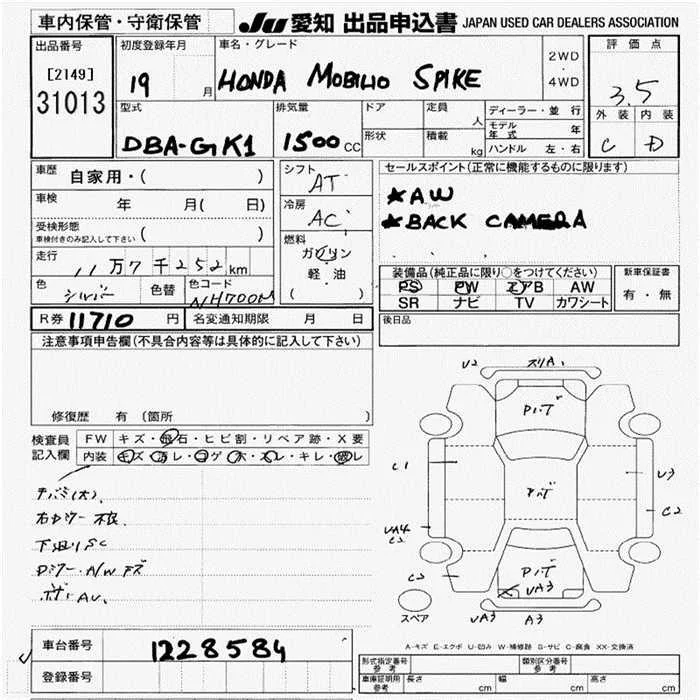 車内保管・守衛保管
JU 愛知 出品申込書 JAPAN USED CAR DEALERS ASSOCIATION
出品番号
[2149]
31013
初度登録年月
19 月
車名・グレード
HONDA MOBILIO SPIKE
2WD
・
4WD
評価点
3.5
外装 内装
C D
型式
DBA-GK1
排気量
1500 CC
ドア
形状
定員 人
積載 kg
ディーラー・並 行
モデル年式 年
ハンドル 左・右
車歴 自家用・( )
車検 年 月( 日)
受検形態
車検付きのみ記入して下さい ( )
走行 11万7千252km
色 シルバー 色替 色コード NH700M
シフト AT
冷房 AC
燃料
ガソリン
軽 油
( )
セールスポイント(正常に機能するものに限ります)
★AW
★BACK CAMERA
装備品(純正品に限り○をつけてください)
PS PW エアB AW
SR ナビ TV カワシート
新車保証書
有・無
R券 11710 円 名変通知期限 月 日
後日品
注意事項申告欄(不具合内容等は具体的に記入して下さい)
修復歴 有 (箇所 )
検査員
記入欄
FW キズ・飛石・ヒビ割・リペア跡・X要
内装 キズ・汚レ・コゲ・穴・スレ・キレ・破レ
下廻リSC
U2 スリA1
C1
U3
C2
UA4
C2
C2
UA3
UA3 A3
スペア
A-キズ E-エクボ U-凹み W-補修跡 S-サビ C-腐食 XX-交換済
車台番号 1228584
登録番号
形式指定番号
参考
類別区分番号
参考
車庫証明用
参考
長さ cm 幅 cm 高さ cm